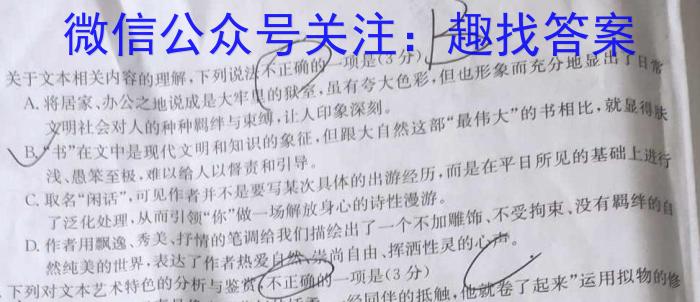 微信公众号关注：趣找答案
B
关于文本相关内容的理解,下列说法不正确的一项是(3分)
A. 将居家、办公之地说成是大牢里的狱室,虽有夸大色彩,但也形象而充分地显出了日常
文明社会对人的种种羁绊与束缚,让人印象深刻。
B. “书”在文中是现代文明和知识的象征,但跟大自然这部“最伟大”的书相比,就显得肤
浅、愚笨至极,难以给人以督责和引导。
C. 取名“闲话”,可见作者并不是要写某次具体的出游经历,而是在平日所见的基础上进行
了泛化处理,从而引领“你”做一场解放身心的诗性漫游。
D. 作者用飘逸、秀美、抒情的笔调给我们描绘出了一个不加雕饰、不受拘束、没有羁绊的自
然纯美的世界,表达了作者热爱自然、崇尚自由、挥洒性灵的心声。
下列对文本艺术特色的分析与鉴赏,不正确的一项是(3分)
经同伴的抵触,他就卷了起来”运用拟物的修